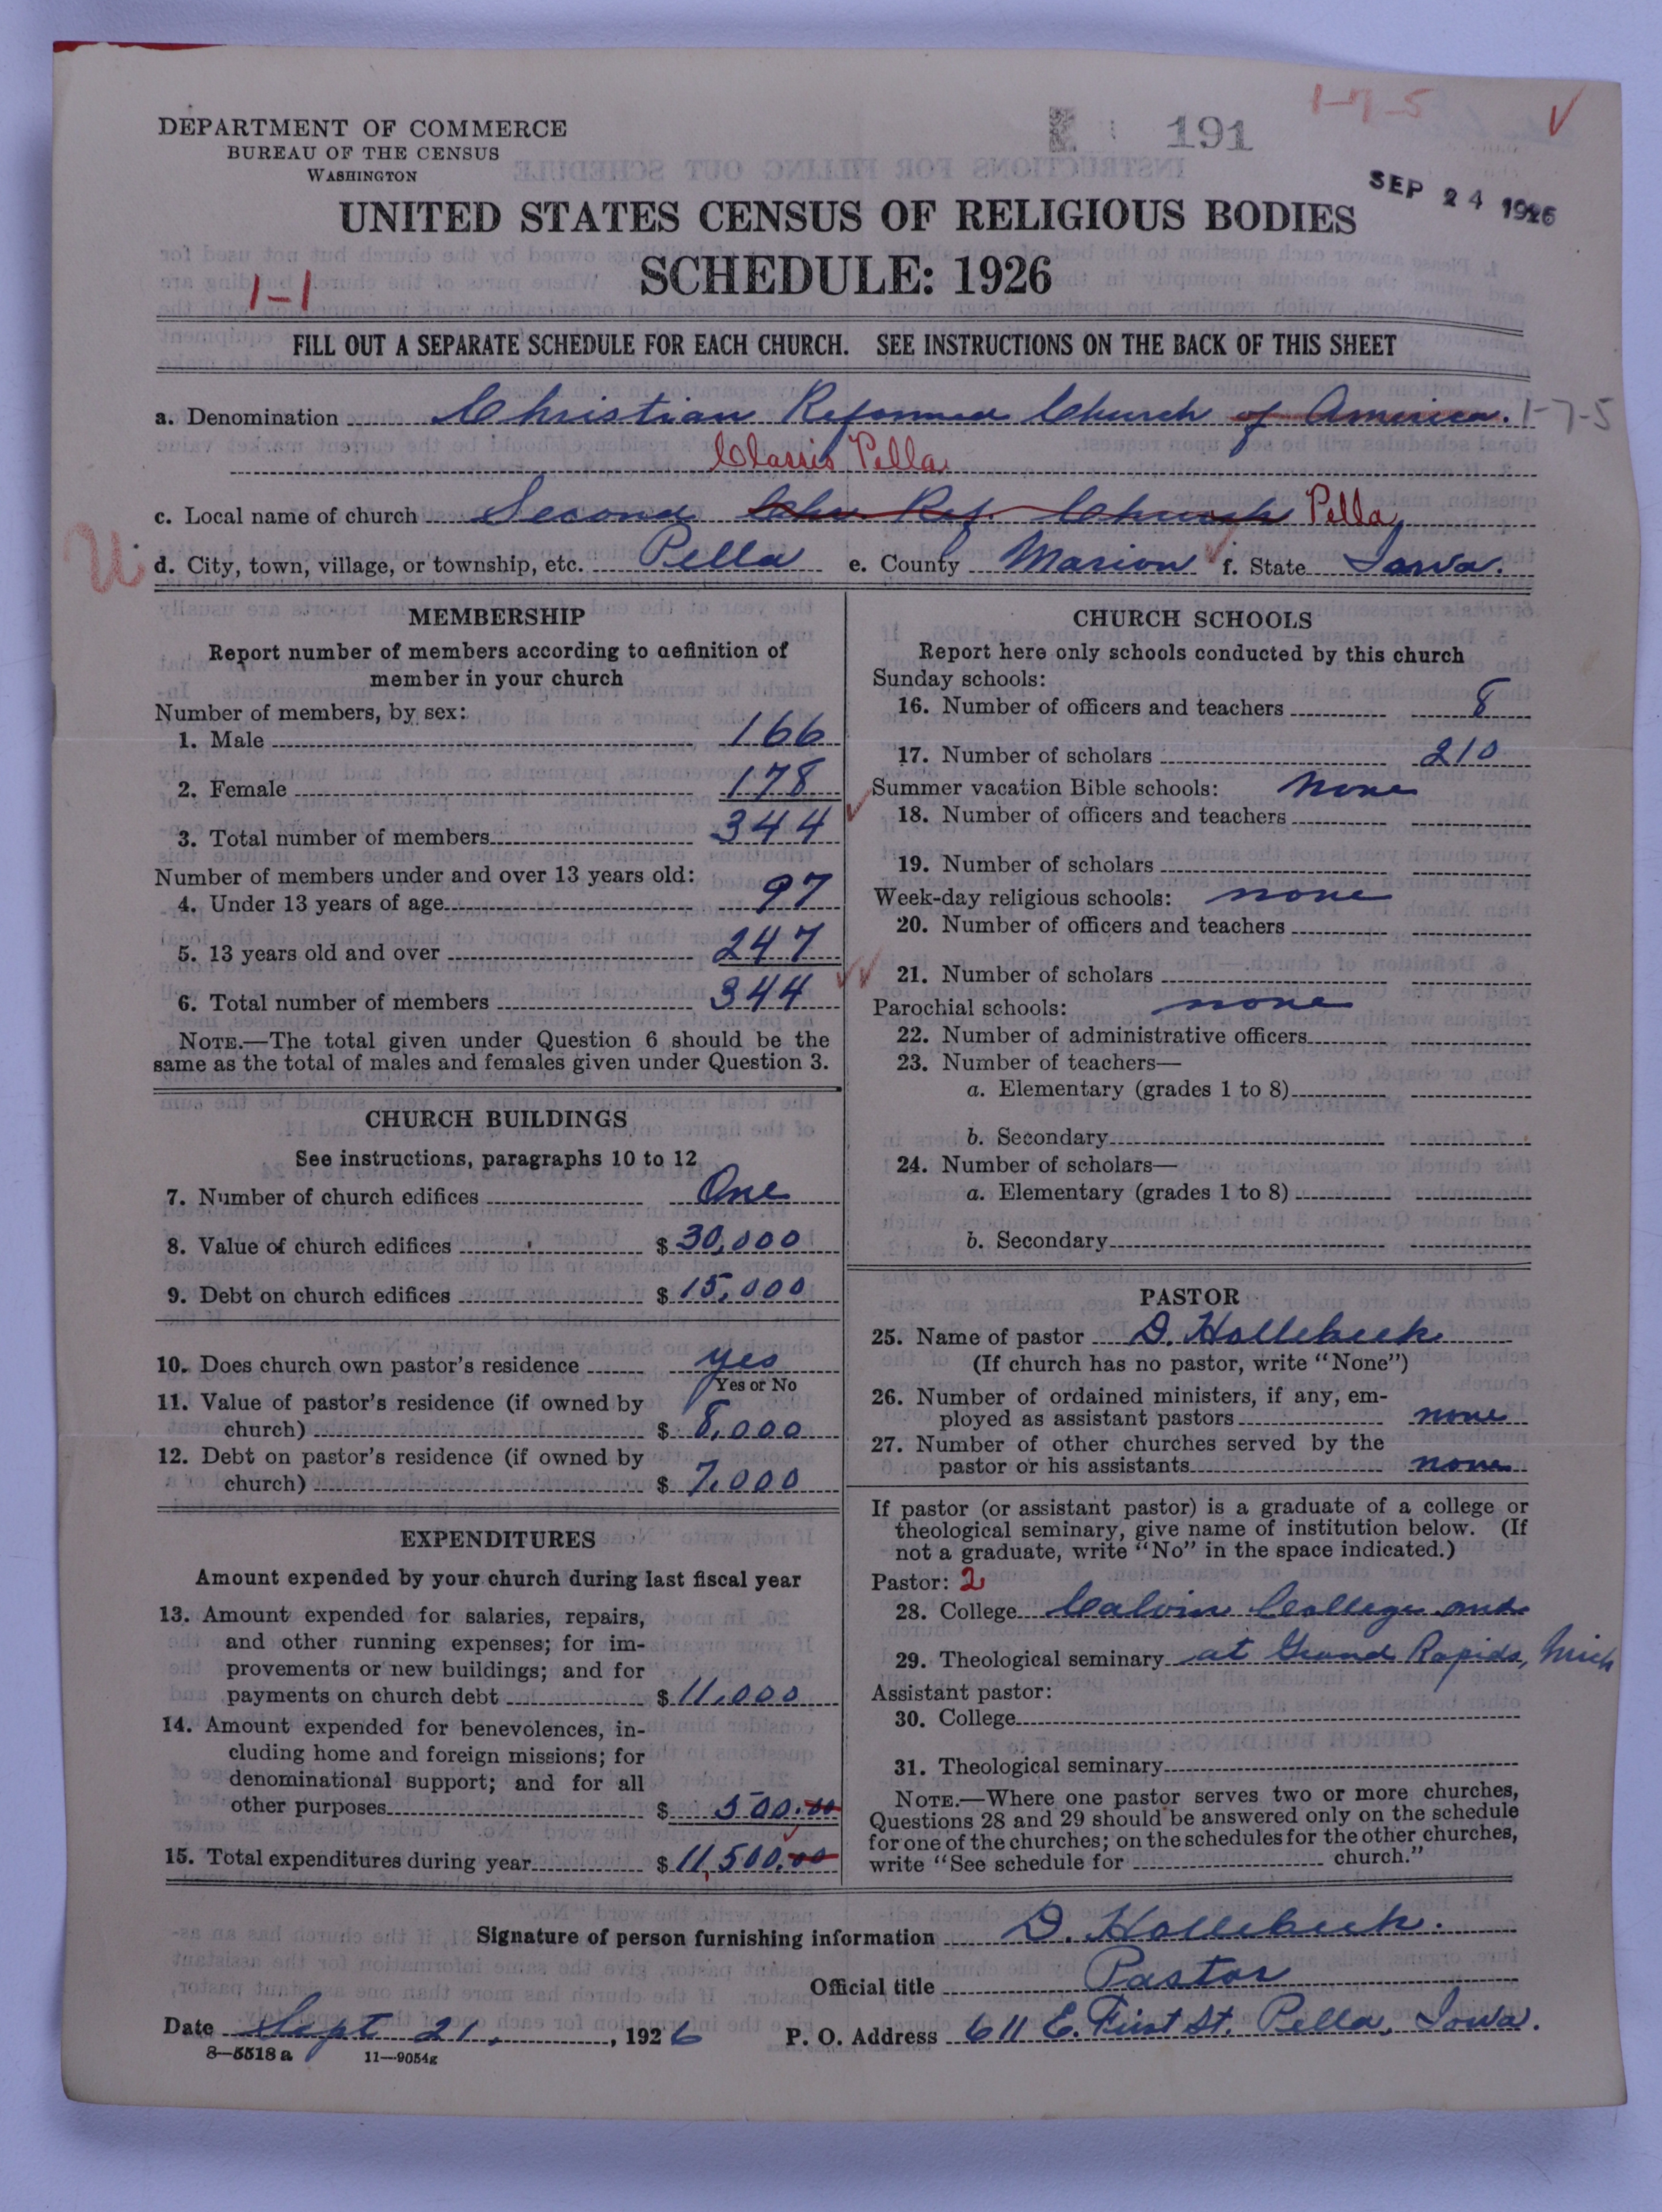 DEPARTMENT OF COMMERCE
BUREAU OF THE CENSUS
WASHINGTON
191
1-7-5
SEP 24 1926
UNITED STATES CENSUS OF RELIGIOUS BODIES
SCHEDULE: 1926
1-1
FILL OUT A SEPARATE SCHEDULE FOR EACH CHURCH. SEE INSTRUCTIONS ON THE BACK OF THIS SHEET
a. Denomination Christian Reformed Church of America. 1-7-5
Classis Pella
c. Local name of church Second Chr. Ref. Church Pella
d. City, town, village, or township, etc. Pella e. County Marion f. State Iowa.
MEMBERSHIP
Report number of members according to definition of
member in your church
Number of members, by sex:
1. Male 166
2. Female 178
3. Total number of members 344
Number of members under and over 13 years old:
4. Under 13 years of age 97
5. 13 years old and over 247
6. Total number of members 344
NOTE.—The total given under Question 6 should be the
same as the total of males and females given under Question 3.
CHURCH BUILDINGS
See instructions, paragraphs 10 to 12
7. Number of church edifices One
8. Value of church edifices $ 30,000
9. Debt on church edifices $ 15,000
10. Does church own pastor's residence yes
Yes or No
11. Value of pastor's residence (if owned by
church) $ 8,000
12. Debt on pastor's residence (if owned by
church) $ 7,000
EXPENDITURES
Amount expended by your church during last fiscal year
13. Amount expended for salaries, repairs,
and other running expenses; for im-
provements or new buildings; and for
payments on church debt $ 11,000
14. Amount expended for benevolences, in-
cluding home and foreign missions; for
denominational support; and for all
other purposes $ 500.00
15. Total expenditures during year $ 11,500.00
CHURCH SCHOOLS
Report here only schools conducted by this church
Sunday schools:
16. Number of officers and teachers 8
17. Number of scholars 210
Summer vacation Bible schools: None
18. Number of officers and teachers
19. Number of scholars
Week-day religious schools: none
20. Number of officers and teachers
21. Number of scholars
Parochial schools: none
22. Number of administrative officers
23. Number of teachers—
a. Elementary (grades 1 to 8)
b. Secondary
24. Number of scholars—
a. Elementary (grades 1 to 8)
b. Secondary
PASTOR
25. Name of pastor D. Hollebeek
(If church has no pastor, write "None")
26. Number of ordained ministers, if any, em-
ployed as assistant pastors none
27. Number of other churches served by the
pastor or his assistants none
If pastor (or assistant pastor) is a graduate of a college or
theological seminary, give name of institution below. (If
not a graduate, write "No" in the space indicated.)
Pastor: 2
28. College Calvin College and
29. Theological seminary at Grand Rapids, Mich
Assistant pastor:
30. College
31. Theological seminary
NOTE.—Where one pastor serves two or more churches,
Questions 28 and 29 should be answered only on the schedule
for one of the churches; on the schedules for the other churches,
write "See schedule for church."
Signature of person furnishing information D. Hollebeek.
Official title Pastor
Date Sept 21, 1926 P. O. Address 611 E. First St. Pella, Iowa.
8—5518 a 11—9054g